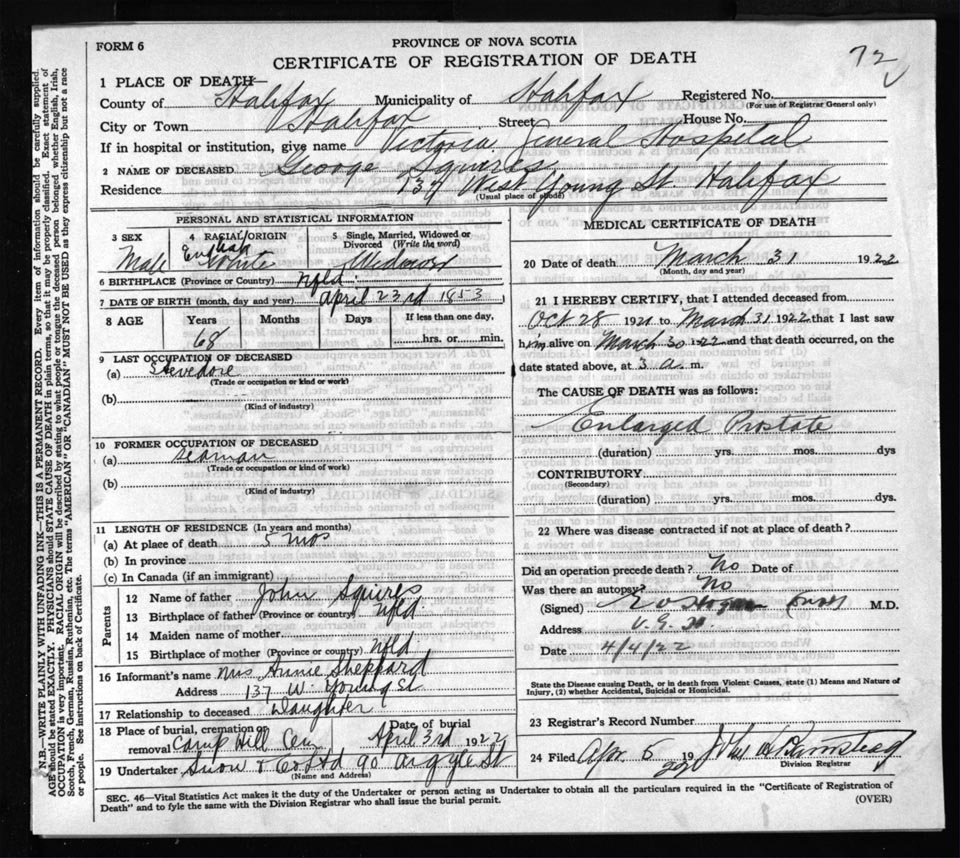 N.B.—WRITE PLAINLY WITH UNFADING INK—THIS IS A PERMANENT RECORD. Every item of information should be carefully supplied.
AGE should be stated EXACTLY. PHYSICIANS should STATE CAUSE OF DEATH in plain terms, so that it may be properly classified. Exact statement of
OCCUPATION is very important. RACIAL ORIGIN will be described by stating to what people or tongue the deceased person belonged whether English, Irish,
Scotch, French, German, Russian, Ruthenian, etc. The terms "AMERICAN" OR "CANADIAN" MUST NOT BE USED as they express citizenship but not a race
or people. See instructions on back of Certificate.
FORM 6
PROVINCE OF NOVA SCOTIA
CERTIFICATE OF REGISTRATION OF DEATH
72
1 PLACE OF DEATH—
County of Halifax Municipality of Halifax Registered No.
(For use of Registrar General only)
City or Town Halifax Street House No.
If in hospital or institution, give name Victoria General Hospital
2 NAME OF DECEASED George Squires
Residence 137 West Young St. Halifax
(Usual place of abode)
PERSONAL AND STATISTICAL INFORMATION
3 SEX 4 RACIAL ORIGIN 5 Single, Married, Widowed or
Divorced (Write the word)
Male English White Widower
6 BIRTHPLACE (Province or Country) Nfld.
7 DATE OF BIRTH (month, day and year) April 23rd 1853
8 AGE Years Months Days If less than one day,
68 hrs. or min.
9 LAST OCCUPATION OF DECEASED
(a) Stevedore
(Trade or occupation or kind or work)
(b)
(Kind of industry)
10 FORMER OCCUPATION OF DECEASED
(a) Seaman
(Trade or occupation or kind of work)
(b)
(Kind of industry)
11 LENGTH OF RESIDENCE (In years and months)
(a) At place of death 5 mos
(b) In province
(c) In Canada (if an immigrant)
Parents
12 Name of father John Squires
13 Birthplace of father (Province or country) Nfld.
14 Maiden name of mother
15 Birthplace of mother (Province or country) Nfld
16 Informant's name Mrs Annie Sheppard
Address 137 W. Young St
17 Relationship to deceased Daughter
18 Place of burial, cremation or Date of burial
removal Camp Hill Cem April 3rd 1922
19 Undertaker Snow & Co Ltd 90 Argyle St
(Name and Address)
MEDICAL CERTIFICATE OF DEATH
20 Date of Death March 31 1922
(Month, day and year)
21 I HEREBY CERTIFY, that I attended deceased from
Oct 28 1921 to March 31 1922 that I last saw
him alive on March 30 1922 and that death occurred, on
date stated above, at 3 a. m.
The CAUSE OF DEATH was as follows:
Enlarged Prostate
(duration) yrs. mos. dys
CONTRIBUTORY
(Secondary)
(duration) yrs. mos. dys.
22 Where was disease contracted if not at place of death?
Did an operation precede death? No Date of
Was there an autopsy? No
(Signed) M.D.
Address V. G. H.
Date 4/4/22
State the Disease causing Death, or in death from Violent Causes, state (1) Means and Nature of
Injury, (2) whether Accidental, Suicidal or Homicidal.
23 Registrar's Record Number
24 Filed Apr 5 1922
Division Registrar
SEC. 46—Vital Statistics Act makes it the duty of the Undertaker or person acting as Undertaker to obtain all the particulars required in the "Certificate of Registration of
Death" and to fyle the same with the Division Registrar who shall issue the burial permit.
(OVER)